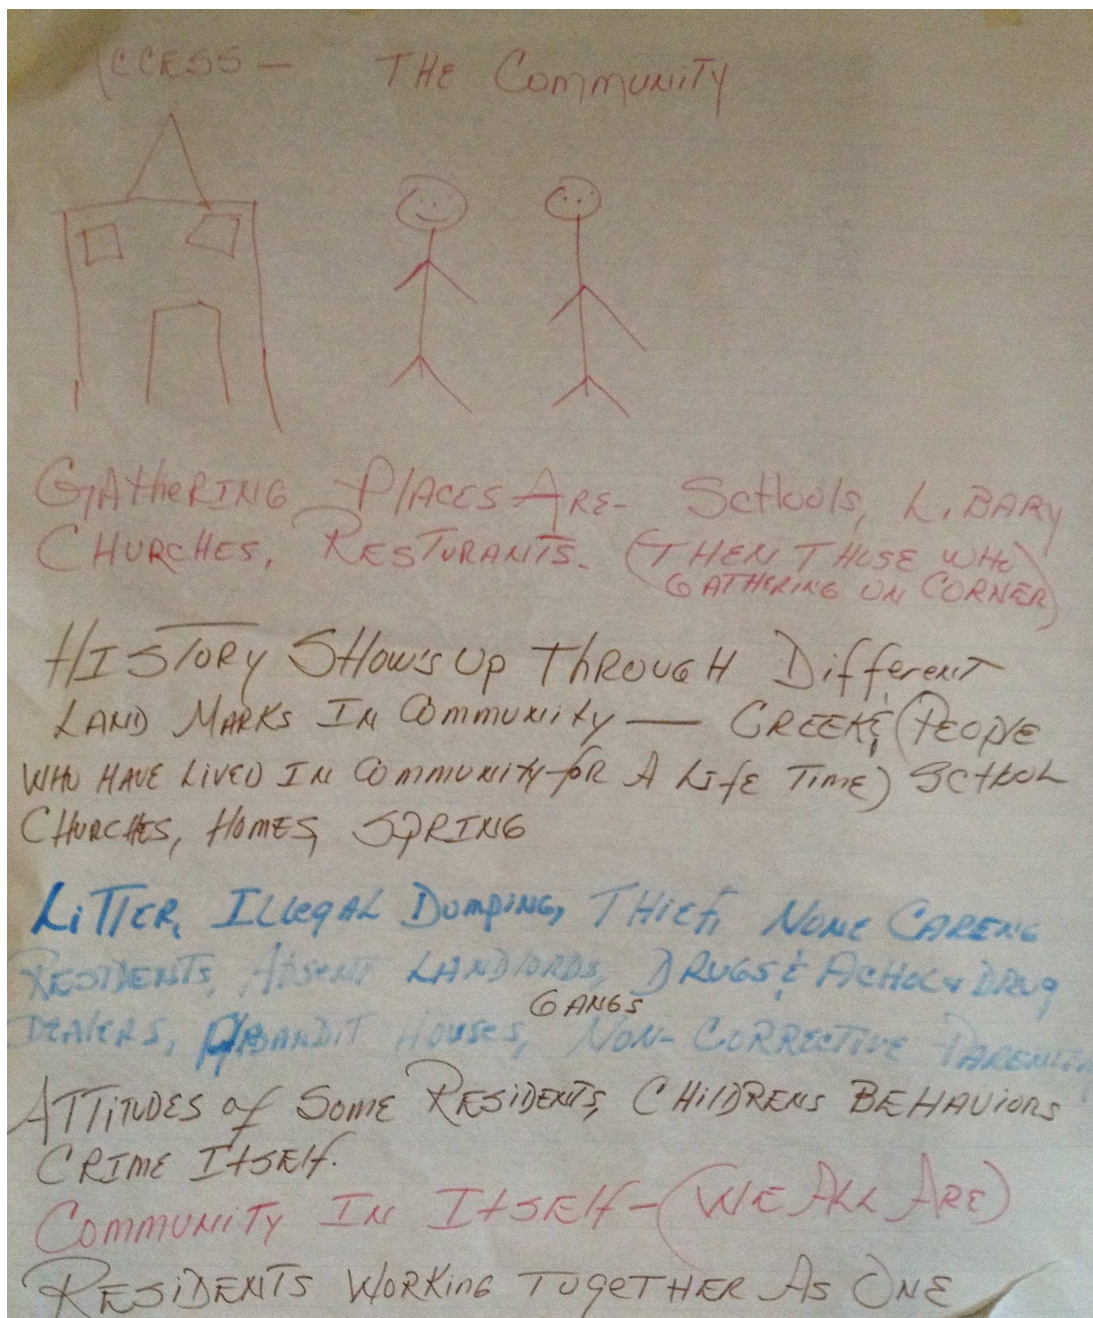 ACCESS — THE COMMUNITY
GATHERING PLACES ARE- SCHOOLS, LIBARY
CHURCHES, RESTURANTS. (THEN THOSE WHO
GATHERING ON CORNER)
HISTORY SHOW'S UP THROUGH Different
LAND MARKS IN COMMUNITY — CREEK, (PEOPLE
WHO HAVE LIVED IN COMMUNITY for A Life TIME) SCHOOL
CHURCHES, HOMES, SPRING
LITTER, ILLEGAL DUMPING, THIEF, NONE CARENG
RESIDENTS, ABSENT LANDLORDS, DRUGS & ACHOL & DRUG
GANGS
DEALERS, ABANDIT HOUSES, NON-CORRECTIVE PARENTING
ATTITUDES of SOME RESIDENTS, CHILDRENS BEHAVIORS
CRIME ITSELF.
COMMUNITY IN ITSELF - (WE ALL ARE)
RESIDENTS WORKING TOGETHER AS ONE